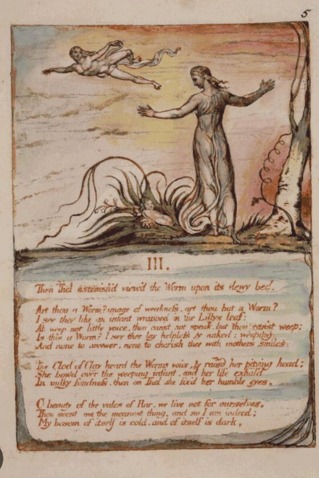 5
III.
Then Thel astonish'd view'd the Worm upon its dewy bed.
Art thou a Worm? image of weakness, art thou but a Worm?
I see thee like an infant wrapped in the Lillys leaf:
Ah weep not little voice, thou canst not speak, but thou canst weep;
Is this a Worm? I see thee lay helpless & naked: weeping,
And none to answer, none to cherish thee with mothers smiles.
The Clod of Clay heard the Worms voice, & raisd her pitying head;
She bow'd over the weeping infant, and her life exhal'd
In milky fondness, then on Thel she fix'd her humble eyes.
O beauty of the vales of Har, we live not for ourselves,
Thou seest me the meanest thing, and so I am indeed;
My bosom of itself is cold, and of itself is dark,